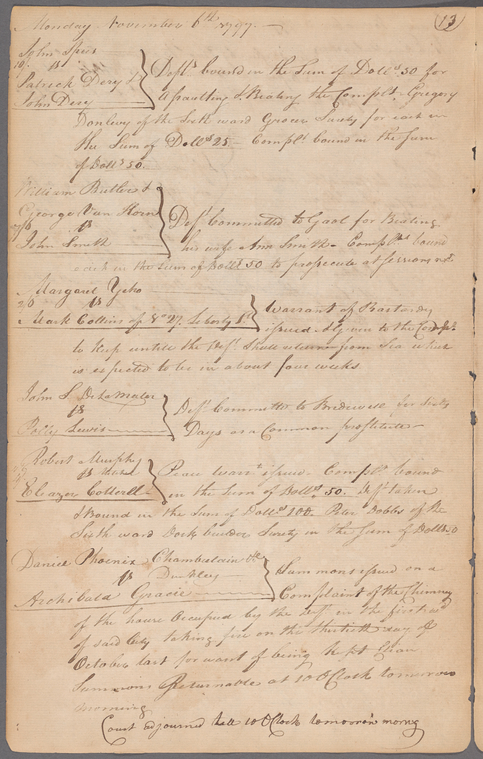 Monday November 6th 1797
13
John Spies
vs
Patrick Dery &
John Dery
Defts bound in the Sum of Dolls 50 for
Assaulting & Beating the Complt. Gregory
Donlevy of the Sixth ward Grocer Surety for each in
the Sum of Dolls 25 - Complt bound in the Sum
of Dolls 50.
William Butler &
George Van Horn
vs
John Smith
Deft Committed to Gaol for Beating
his wife Ann Smith - Complts bound
each in the Sum of Dolls 50 to prosecute at sessions
Margaret
vs
Mark Collins of No 27 Liberty St
Warrant of Bastardy
issued & given to the
to keep untill the Deft shall return from Sea where
is expected to be in about four weeks
John S. DeLamater
vs
Polly Lewis
Deft Committed to Bridewell for Sixty
Days as a Common prostitute
Robert Murphy
vs
Eleazer Cotterell
Peace Warrt issued - Complt bound
in the Sum of Dolls 50. Deft taken
& Bound in the Sum of Dolls 100 Peter Dobbs of the
Sixth ward Dock builder Surety in the Sum of Dolls 50
Daniel Phoenix Chamberlain
vs
Archibald Gracie
Summons issued on a
Complaint of the Chimney
of the house Occupied by the Deft in the first
of said City taking fire on the thirtieth day of
October last for want of being kept Clean
Summons Returnable at 10 OClock tomorrow
morning
Court adjourned till 10 OClock tomorrow morng